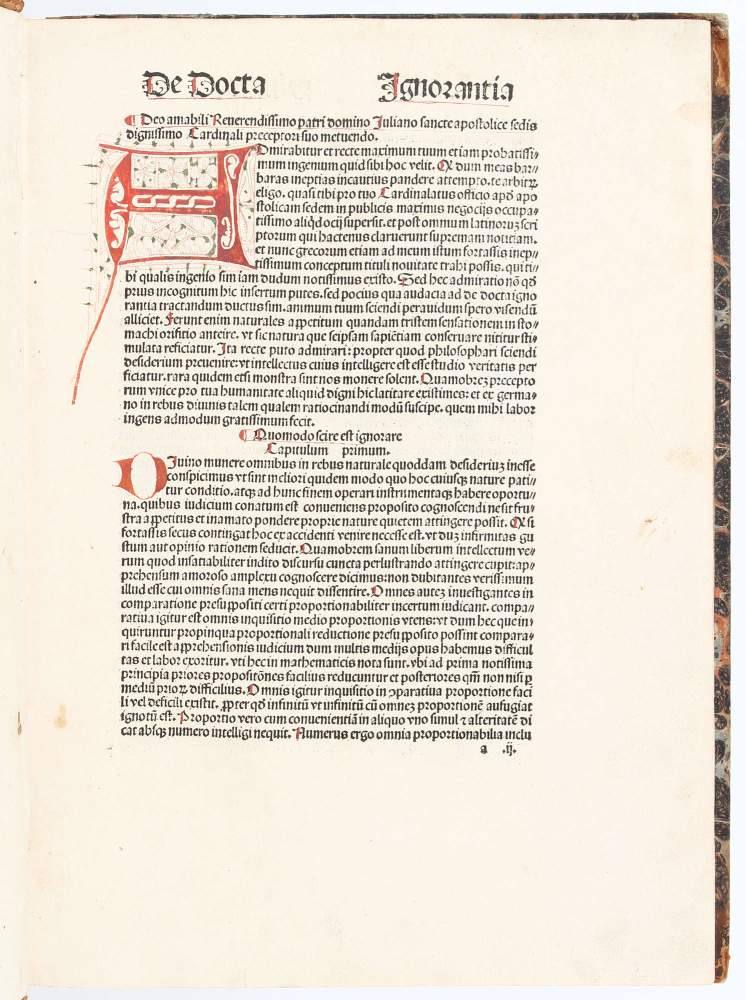 De Docta Ignorantia
¶ Deo amabili Reverendissimo patri domino Juliano sancte apostolice sedis
dignissimo Cardinali preceptori suo metuendo.
ADmirabitur et recte maximum tuum et iam probatissi⸗
mum ingenium quid sibi hoc velit. Qꝫ dum meas bar⸗
baras ineptias incautius pandere attempto. te arbitrꝝ
eligo. quasi tibi pro tuo Cardinalatus officio apd̄ apo
stolicam sedem in publicis maximus negocijs occupa⸗
tissimo aliqd̄ ocij supersit. et post omnium latinoruꝫ scri
ptorum qui hactenus claruerunt supremam noticiam.
et nunc grecorum etiam ad meum istum fortassis inep⸗
tissimum conceptum tituli nouitate trahi possis. qui ti⸗
bi qualis ingenio sim iam dudum notissimus existo. Sed hec admiratio nō qd̄
prius incognitum hic insertum putes. sed pocius qua audacia ad de docta igno
rantia tractandum ductus sim. animum tuum sciendi peruidum spero visendū
alliciet. Ferunt enim naturales appetitum quandam tristem sensationem in sto⸗
machi orifitio anteire. vt sic natura que seipsam sapiētiam conseruare nititur sti⸗
mulata reficiatur. Ita recte puto admirari: propter quod philosophari sciendi
desiderium preuenire: vt intellectus cuius intelligere est esse studio veritatis per
ficiatur. rara quidem etsi monstra sint nos monere solent. Quamobreꝫ precepto
rum vnice pro tua humanitate aliquid digni hic latitare existimes: et ex germa⸗
no in rebus diuinis talem qualem ratiocinandi modū suscipe. quem mihi labor
ingens admodum gratissimum fecit.
¶ Quomodo scire est ignorare
Capitulum primum.
DIuino munere omnibus in rebus naturale quoddam desideriuꝫ inesse
conspicimus vt sint meliori quidem modo quo hoc cuiusqꝫ nature pati⸗
tur conditio. atqꝫ ad hunc finem operari instrumentaqꝫ habere oportu⸗
na. quibus iudicium conatum est conueniens proposito cognoscendi ne sit fru⸗
stra appetitus et in amato pondere proprie nature quietem attingere possit. Qꝫ si
fortassis secus contingat hoc ex accidenti venire necesse est. vt duꝫ infirmitas gu
stum aut opinio rationem seducit. Quamobrem sanum liberum intellectum ve⸗
rum quod insatiabiliter indito discursu cuncta perlustrando attingere cupit: ap⸗
prehensum amoroso amplexu cognoscere dicimus: non dubitantes verissimum
illud esse cui omnis sana mens nequit dissentire. Omnes auteꝫ inuestigantes in
comparatione presuppositi certi proportionabiliter incertum iudicant. compa⸗
ratiua igitur est omnis inquisitio medio proportionis vtens: vt dum hec que in⸗
quiruntur propinqua proportionali reductione presupposito possint compara⸗
ri facile est apprehensionis iudicium dum multis medijs opus habemus difficul
tas et labor exoritur. vti hec in mathematicis nota sunt. vbi ad prima notissima
principia priores propositōnes facilius reducuntur et posteriores qm̄ non nisi ꝑ
mediū priorꝝ difficilius. Omnis igitur inquisitio in ꝯparatiua proportione faci
li vel deficili existit. ꝓpter qd̄ infinitū vt infinitū cū omneꝫ proportionē aufugiat
ignotū est. Proportio vero cum conuenientiā in aliquo vno simul ⁊ alteritatē di
cat absqꝫ numero intelligi nequit. Numerus ergo omnia proportionabilia inclu
a .ij.